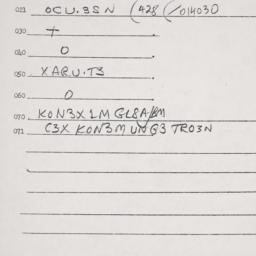 021 OCU.3SN (428 (/014030
030 +
040 O
050 XARU.T3
060 O
070 KON3X1M GL8A/BM
071 C3X KON3M UNG3 TRO3N